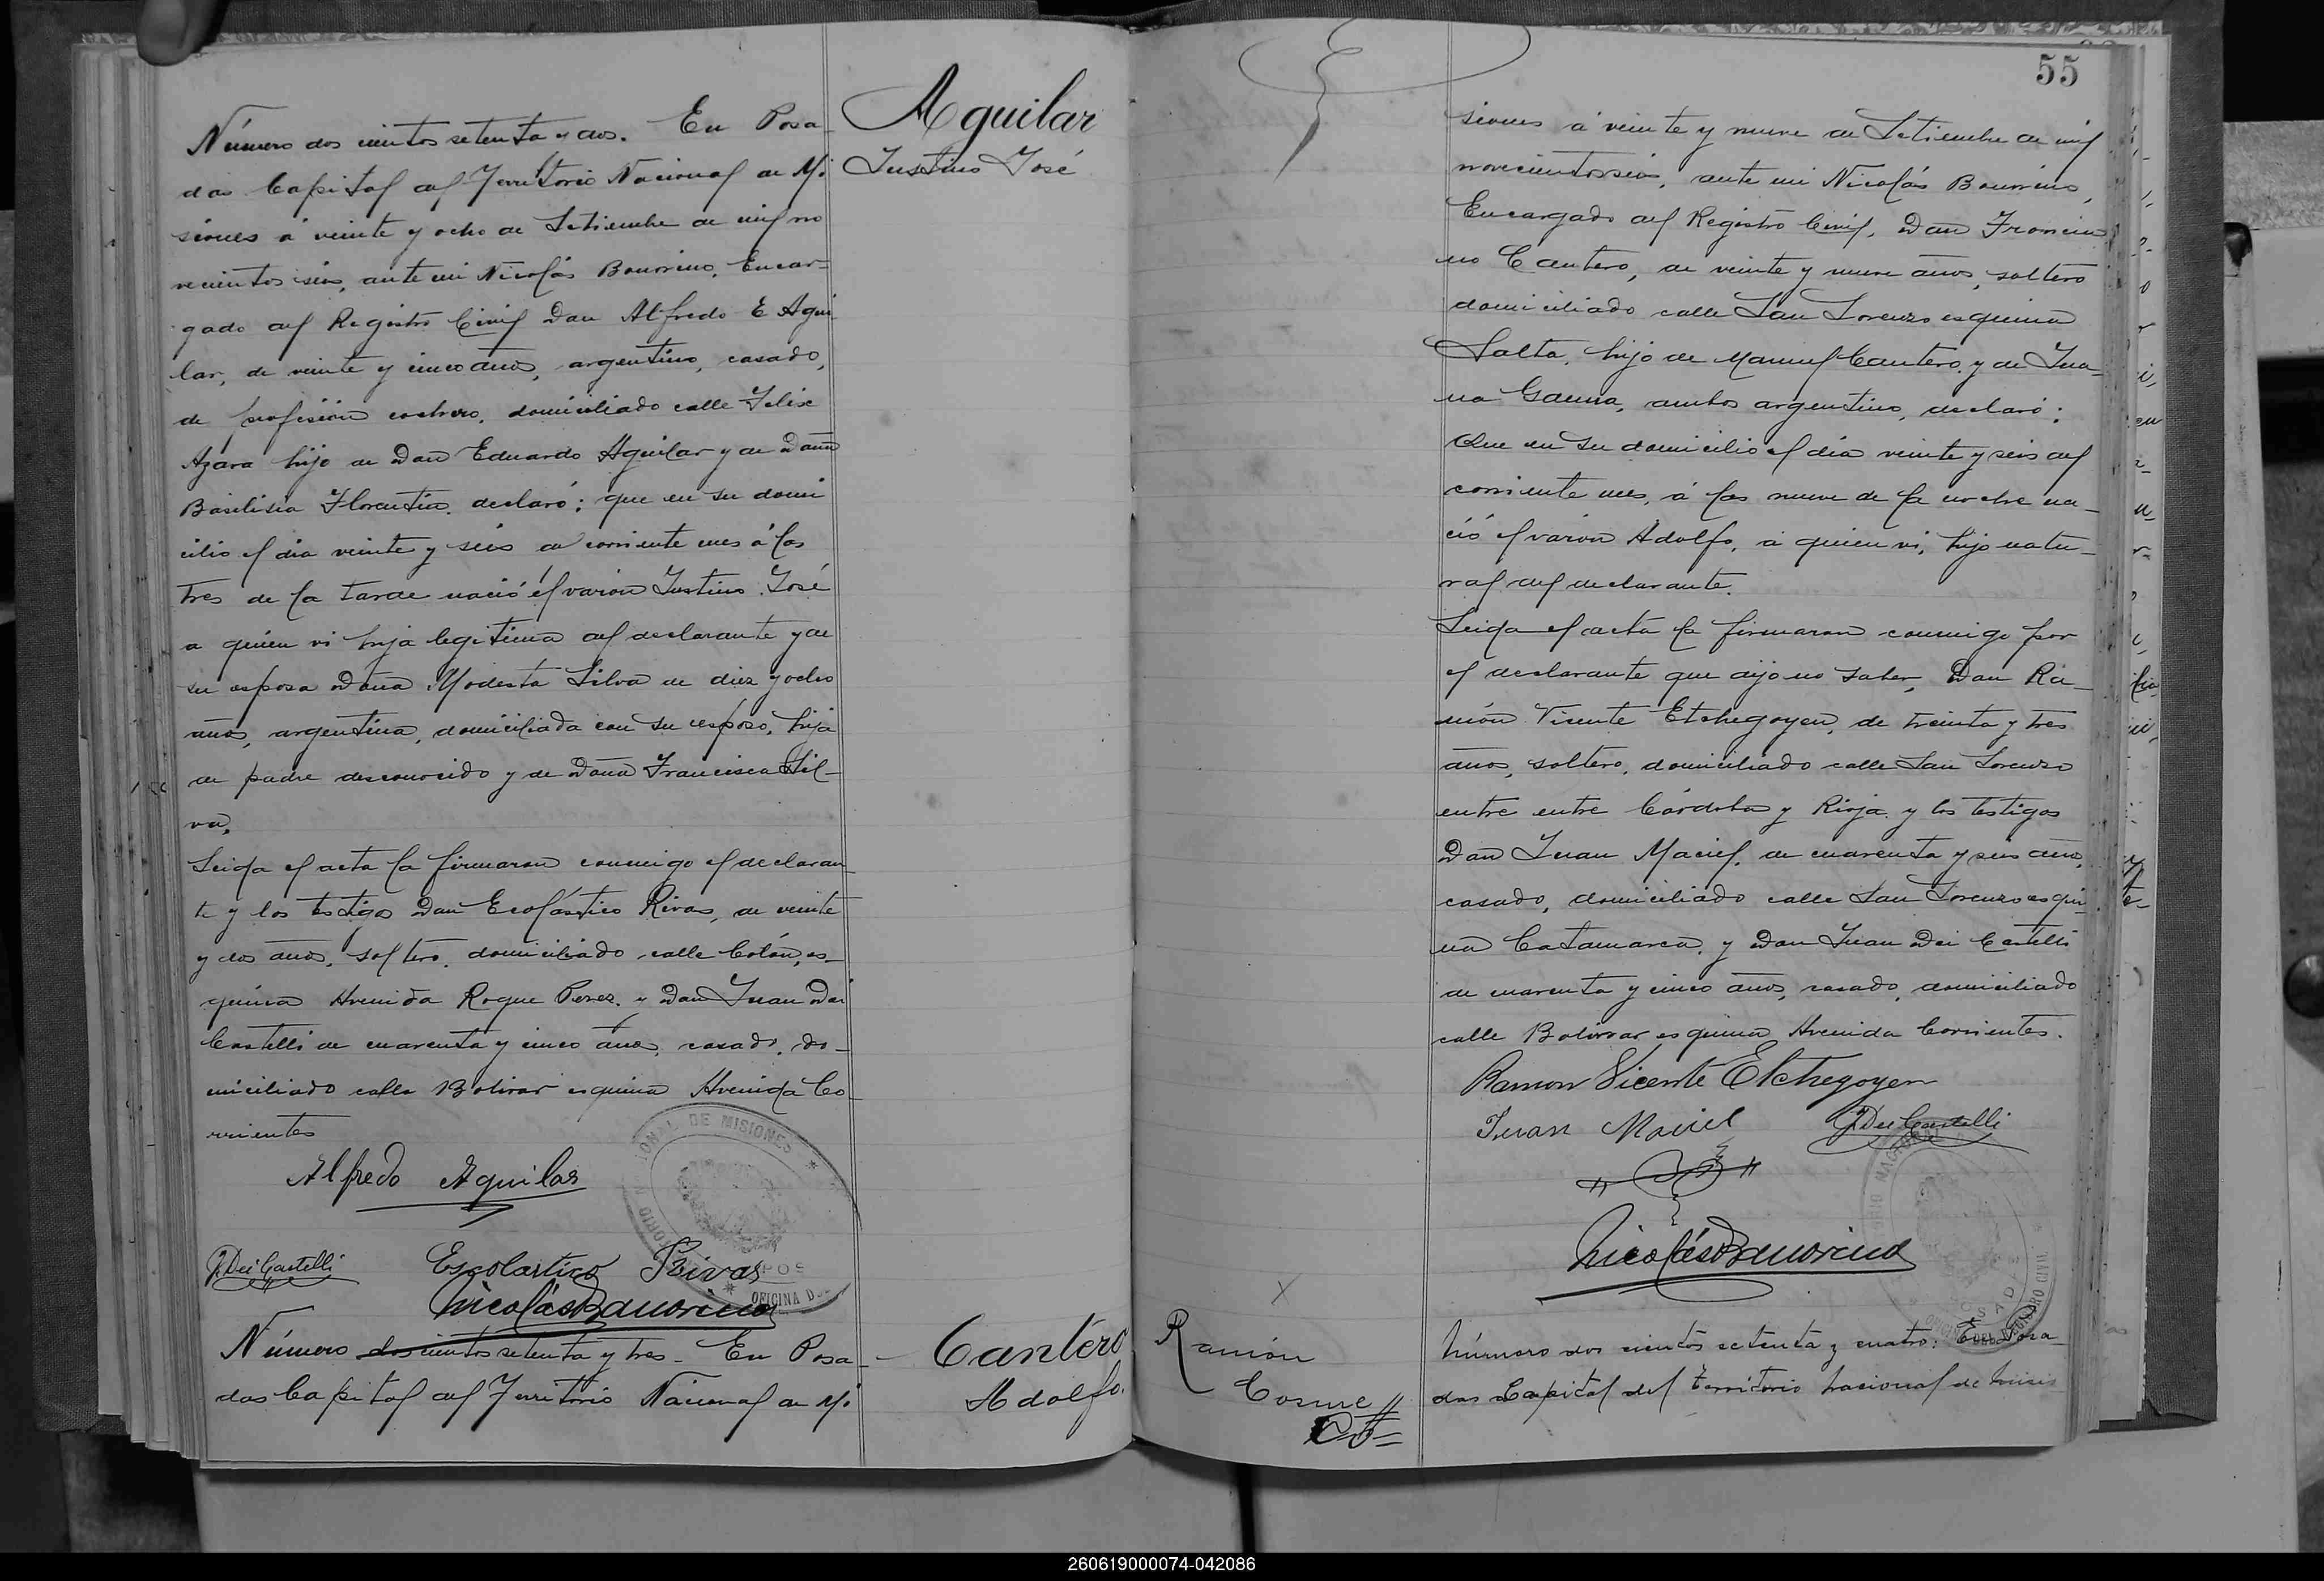 Número dos cientos setenta y dos. En Posa
das Capital del Territorio Nacional de Mi
siones á veinte y ocho de Setiembre de mil no
vecientos seis, ante mi Nicolás Bourrino, Encar-
gado del Registro Civil Don Alfredo E Agui
lar, de veinte y cinco años, argentino, casado,
de profesión cochero, domiciliado calle Felix
Azara hijo de Don Eduardo Aguilar y de Doña
Basilisia Florentin. declaró; que en su domi
cilio el dia veinte y seis del corriente mes á las
tres de la tarde nació el varón Justino José
a quien vi hijo legitima del declarante y de
su esposa Doña Modesta Silva de diez y ocho
años, argentina, domiciliada con su esposo, hija
de padre desconocido y de Doña Francisca Sil-
va,
Leida el acta la firmaron conmigo el declaran
te y los testigos Don Escolástico Rivas, de veinte
y dos años, soltero, domiciliado calle Colón, es-
quina Avenida Roque Perez. y Don Juan Dei
Castelli de cuarenta y cinco años, casado, do-
miciliado calle Bolivar esquina Avenida Co-
rrientes
Alfredo Aguilar
J. Dei Castelli Escolastico Rivas
Nicolás Bourrino
ONAL DE MISIONES
OFICINA D
Aguilar
Justino José
Número dos cientos setenta y tres- En Posa-
das Capital del Territorio Nacional de Mi
Cantero
Adolfo.
55
siones á veinte y nueve de Setiembre de mil
novecientos seis, ante mi Nicolás Bourrino,
Encargado del Registro Civil, Don Francis
no Cantero, de veinte y nueve años, soltero
domiciliado calle San Lorenzo esquina
Salta, hijo de Manuel Cantero, y de Jua-
na Gauna, ambos argentino, declaró;
Que en su domicilio el dia veinte y seis del
corriente mes, á las nueve de la noche na-
ció el varón Adolfo, á quien vi, hijo natu-
ral del declarante.
Leida el acta la firmaron conmigo por
el declarante que dijo no saber, Don Ra-
món Vicente Etchegoyen, de treinta y tres
años, soltero, domiciliado calle San Lorenzo
entre entre Córdoba y Rioja y los testigos
Don Juan Maciel, de cuarenta y seis años,
casado, domiciliado calle San Lorenzo esqui-
na Catamarca, y Don Juan Dei Castelli
de cuarenta y cinco años, casado, domiciliado
calle Bolivar esquina Avenida Corrientes.
Ramon Vicente Etchegoyen
Juan Maciel J. Dei Castelli
Nicolás Bourrino
Ramón
Cosme
Número dos cientos setenta y cuatro: En Posa-
das Capital del Territorio Nacional de Misio
260619000074-042086